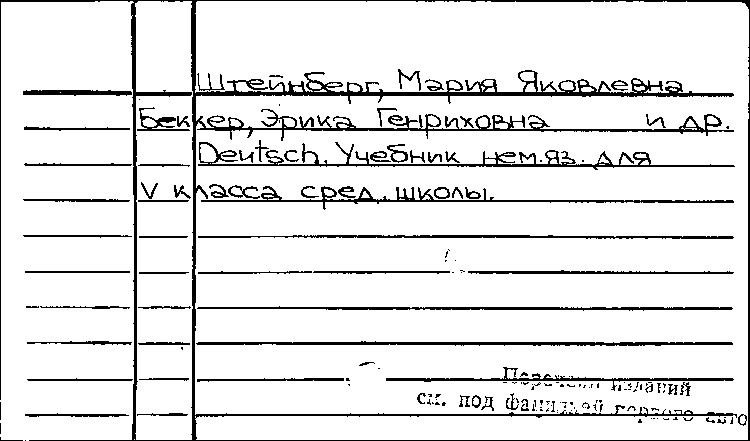 Штейнберг, Мария Яковлевна.
Беккер, Эрика Генриховна и др.
Deutsch. Учебник нем.яз. для
V класса сред. школы.
Перечень изданий
см. под фамилией первого авто